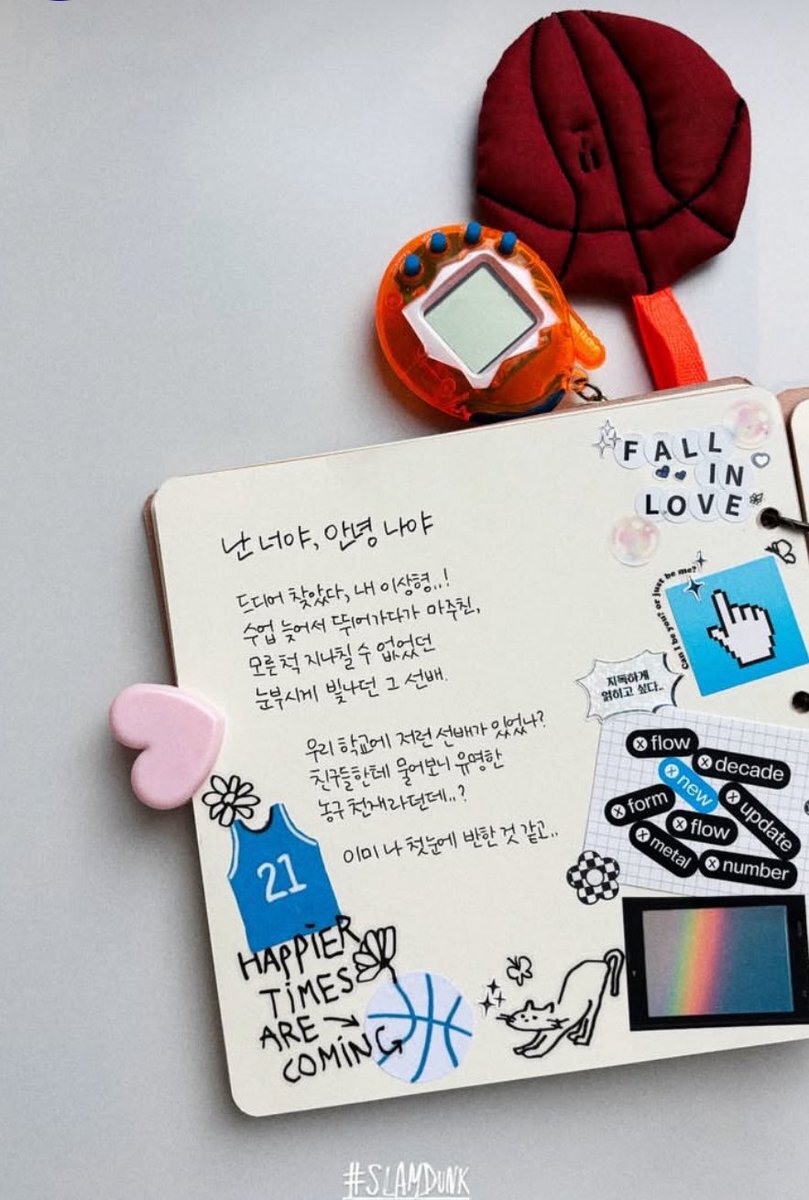 난 너야, 안녕 나야
드디어 찾았다, 내 이상형..!
수업 늦어서 뛰어가다가 마주친,
모른 척 지나칠 수 없었던
눈부시게 빛나던 그 선배.
우리 학교에 저런 선배가 있었나?
친구들한테 물어보니 유명한
농구 천재라던데..?
이미 나 첫눈에 반한 것 같고..
FALL
IN
LOVE
Can I be you? or just be me?
지독하게
얽히고 싶다..
flow
decade
new
form
update
flow
metal
number
21
HAPPIER
TIMES
ARE
COMING
#SLAMDUNK